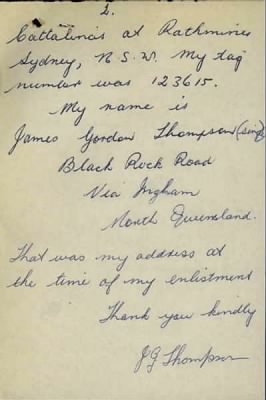 2.
Cattalina's at Rathmines
Sydney, N.S.W. My tag
number was 123615.
My name is
James Gordon Thompson (sing)
Black Rock Road
Via Ingham
North Queensland.
That was my address at
the time of my enlistment
Thank you kindly
J G Thompson